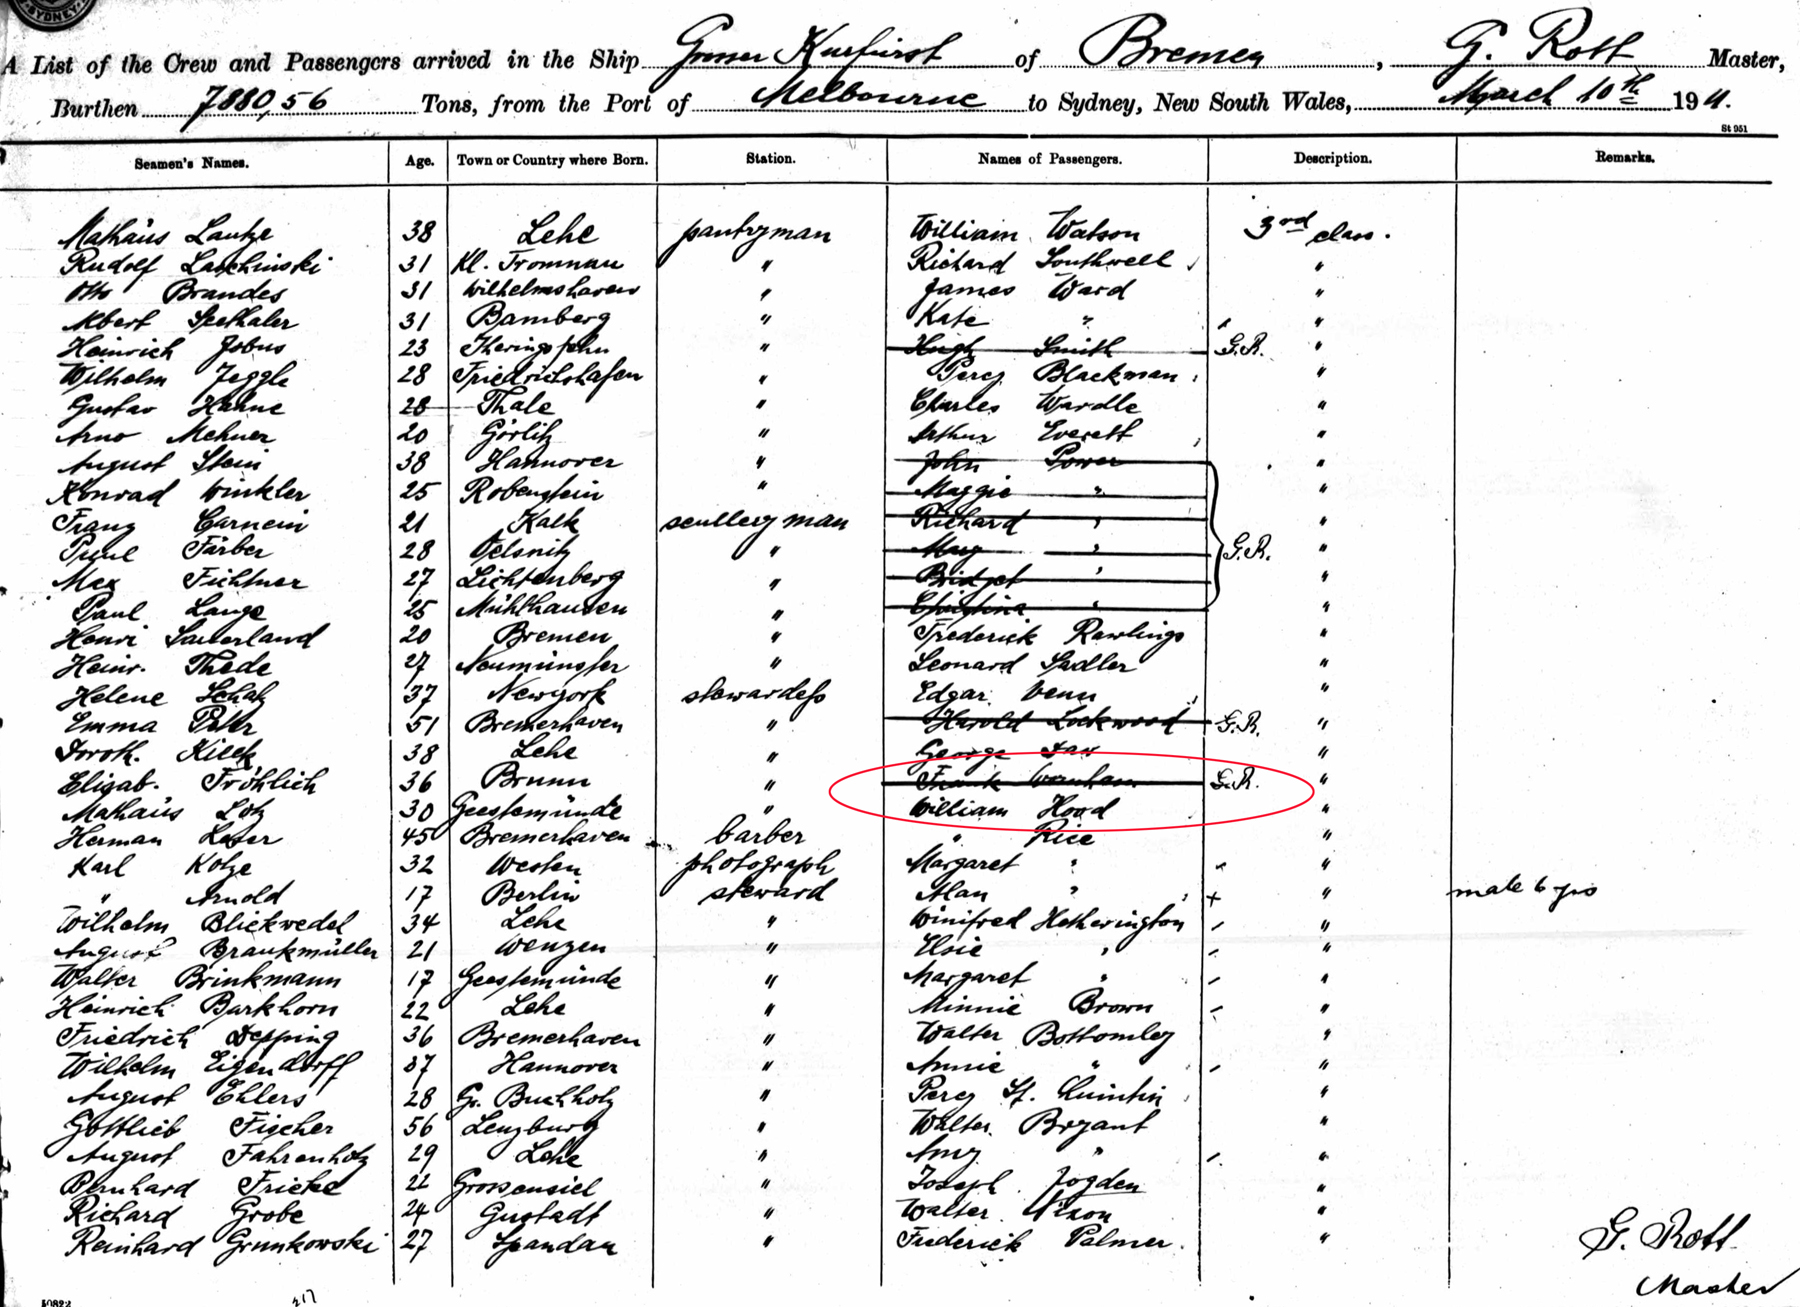 SYDNEY
A List of the Crew and Passengers arrived in the Ship Grosser Kurfürst of Bremen, G. Rott Master,
Burthen 7880,56 Tons, from the Port of Melbourne to Sydney, New South Wales, March 10th 1911.
St 951
Seamen's Names. Age. Town or Country where Born. Station. Names of Passengers. Description. Remarks.
Mathäus Lautze 38 Lehe pantryman William Watson 3rd class.
Rudolf Laschinski 31 Kl. Tromnau " Richard Southwell "
Otto Brandes 31 Wilhelmshaven " James Ward "
Albert Seethaler 31 Bamberg " Kate " "
Heinrich Jobus 23 Iheringsfehn " Hugh Smith G.R. "
Wilhelm Jeggle 28 Friedrichshafen " Percy Blackman "
Gustav Hahne 28 Thale " Charles Wardle "
Arno Mehner 20 Görlitz " Arthur Everett "
August Stein 38 Hannover " John Power "
Konrad Winkler 25 Robenstein " Maggie " "
Franz Carnein 21 Kalk scullery man Richard " "
Paul Färber 28 Oelsnitz " Mary " G.R. "
Max Fichtner 27 Lichtenberg " Bridget " "
Paul Lange 25 Mühlhausen " Christina " "
Henri Sauerland 20 Bremen " Frederick Rawlings "
Heinr. Thede 27 Neumünster " Leonard Sadler "
Helene Schatz 37 Newyork stewardess Edgar Venn "
Emma Peter 51 Bremerhaven " Harold Lockwood G.R. "
Doroth. Kück 38 Lehe " George "
Elisab. Fröhlich 36 Brunn " Frank Wornham G.R. "
Mathäus Lotz 30 Geestemünde " William Hood "
Herman Leser 45 Bremerhaven barber " Rice "
Karl Kotze 32 Westen photograph Margaret " "
" Arnold 17 Berlin steward Alan " + " male 6 yrs
Wilhelm Blickwedel 34 Lehe " Winifred Hetherington "
August Braukmüller 21 Wenzen " Elsie " "
Walter Brinkmann 17 Geestemünde " Margaret " "
Heinrich Barkhorn 22 Lehe " Minnie Brown "
Friedrich Depping 36 Bremerhaven " Walter Bottomley "
Wilhelm Eigendorff 37 Hannover " Annie " "
August Ehlers 28 Gr. Buchholz " Percy St. Quintin "
Gottlieb Fischer 56 Lenzburg " Walter Bryant "
August Fahrenholz 29 Lehe " Amy " "
Bernhard Fricke 21 Grossensiel " Joseph Jogden "
Richard Grobe 24 Gustadt " Walter Nixon "
Reinhard Grunkowski 27 Spandau " Frederick Palmer "
G. Rott
Master
10822 217